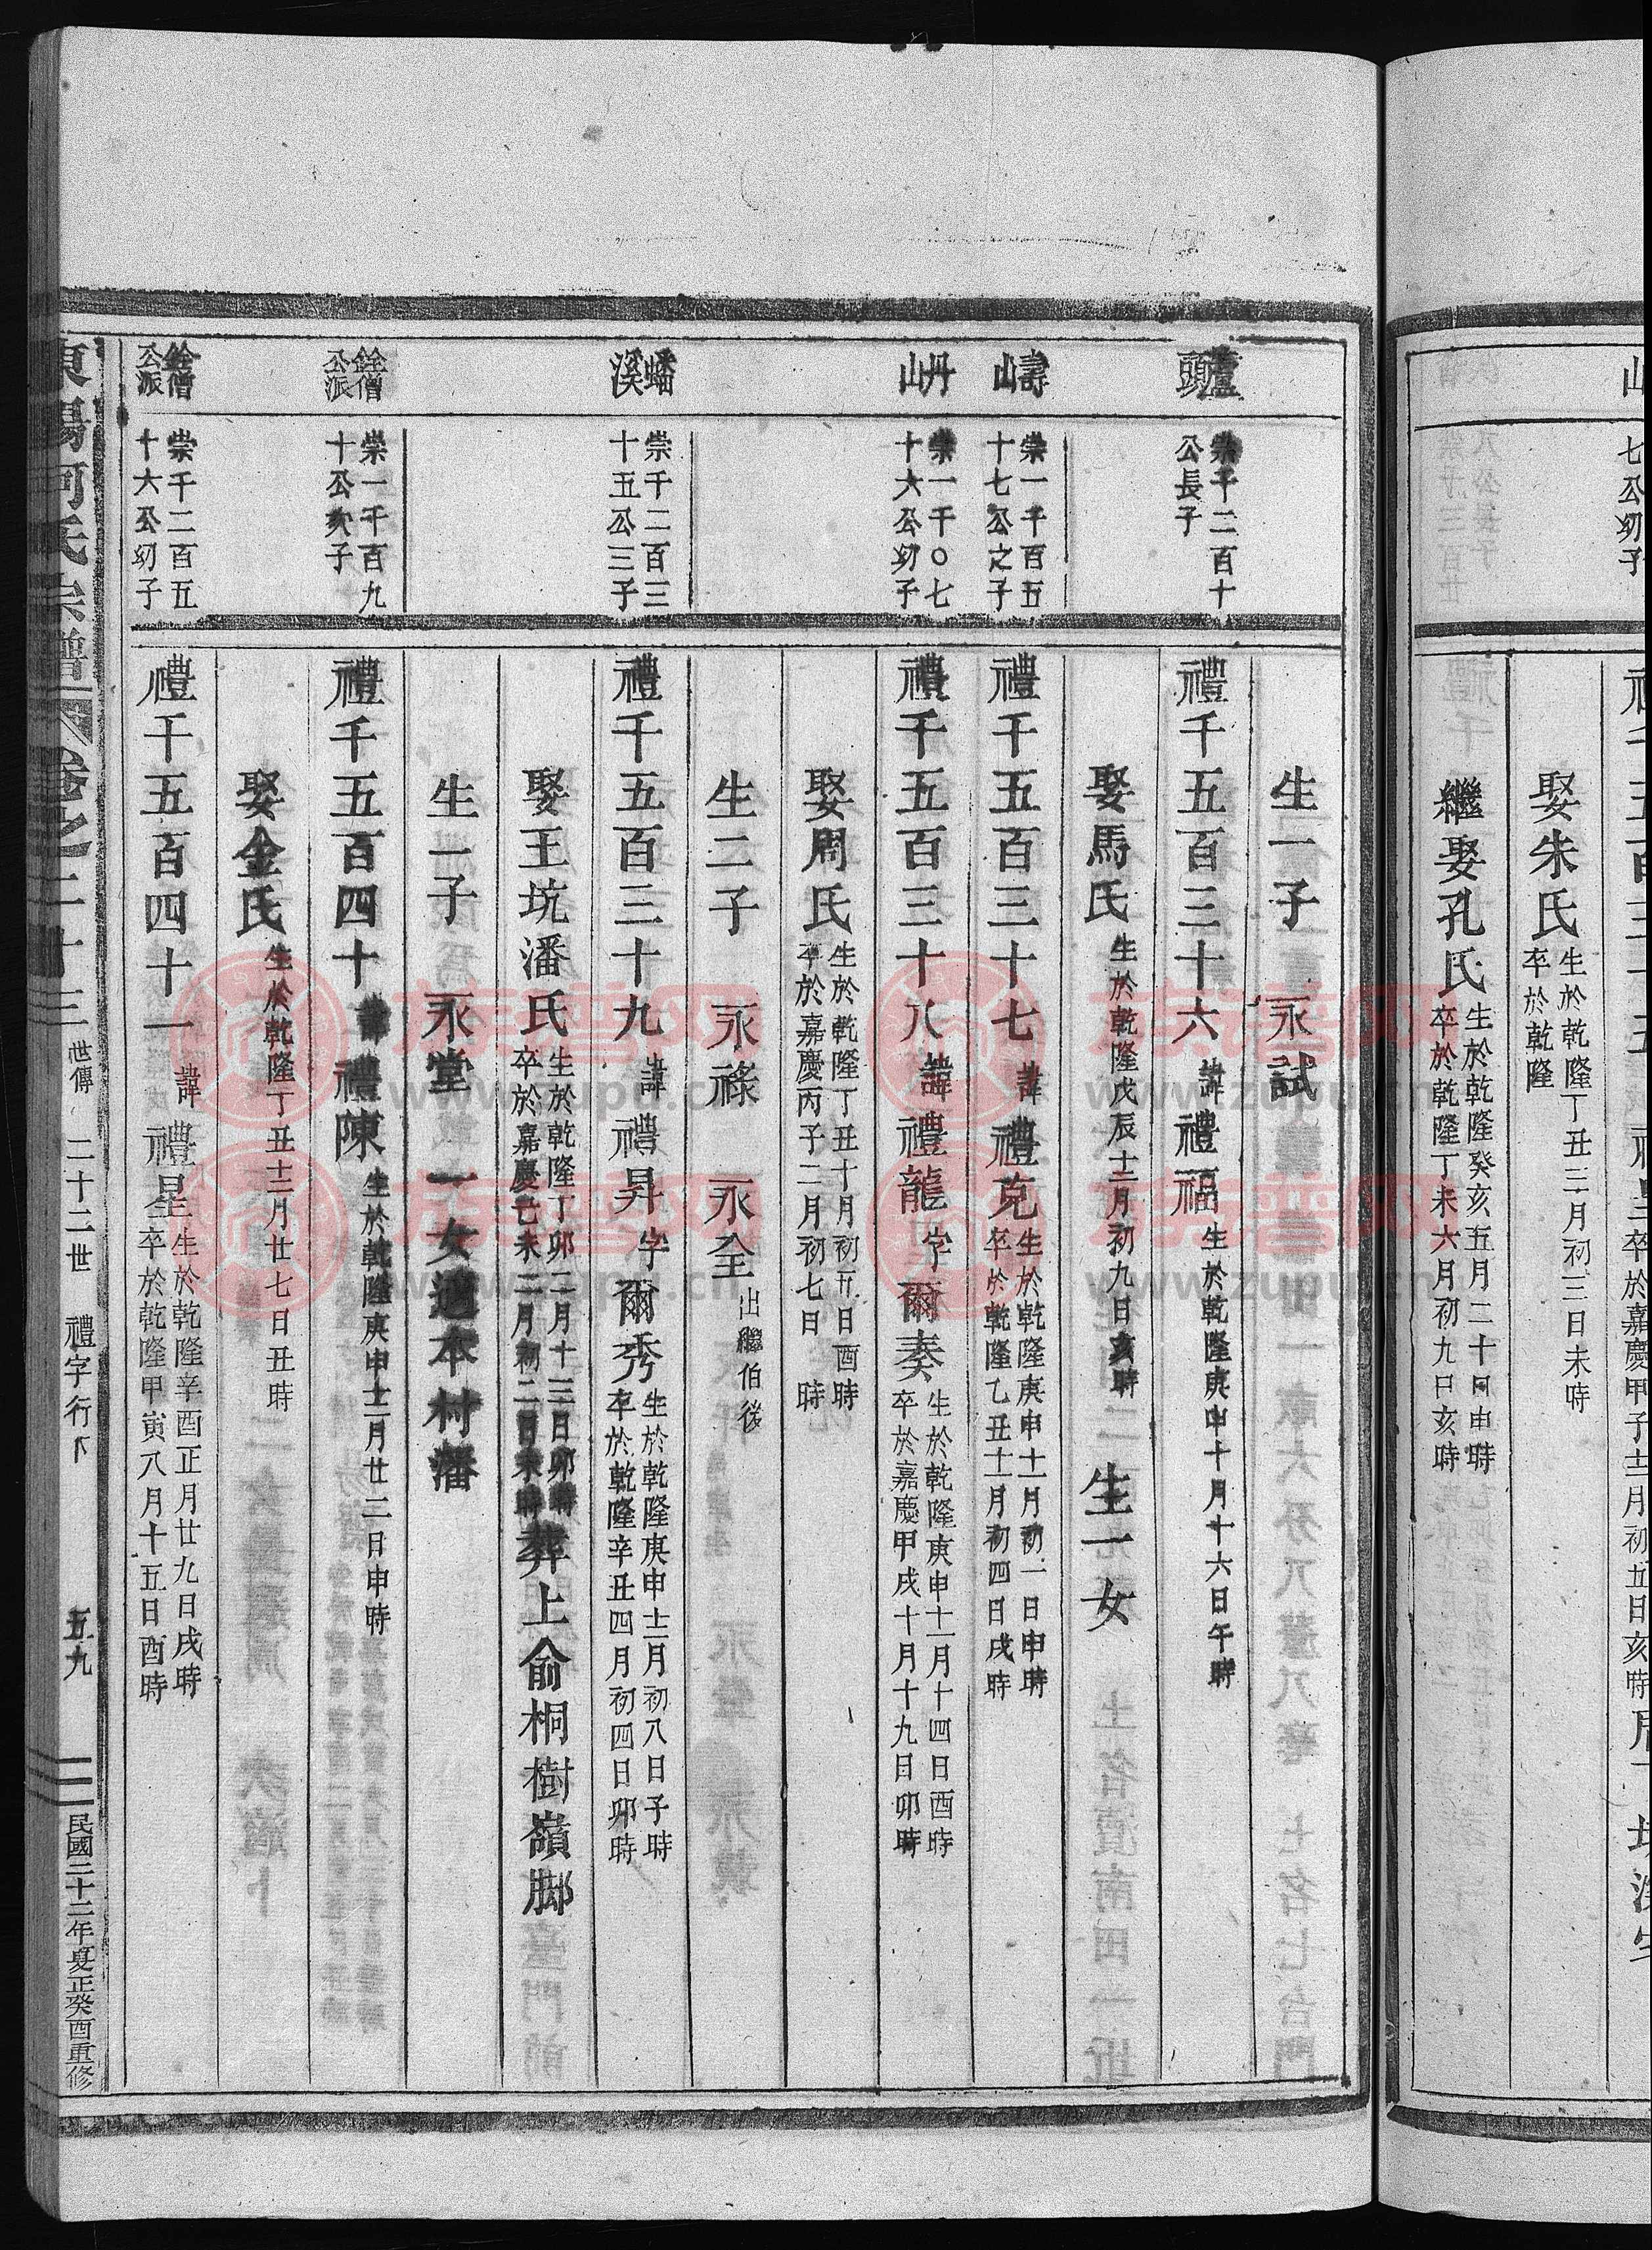 七公幼子
娶朱氏 生於乾隆丁丑三月初三日未時 卒於乾隆
繼娶孔氏 生於乾隆癸亥五月二十日申時 卒於乾隆丁未六月初九日亥時
生一子 永試
蘆頭
崇千二百十公長子
禮千五百三十六 諱 禮福 生於乾隆庚申十月十六日午時
娶馬氏 生於乾隆戊辰十二月初九日亥時 生一女
壽山
崇一千百五十七公之子
禮千五百三十七 諱 禮克 生於乾隆庚申十一月初一日申時 卒於乾隆乙丑十一月初四日戌時
丹山
崇一千〇七十六公幼子
禮千五百三十八 諱 禮龍 字 爾奏 生於乾隆庚申十一月十四日酉時 卒於嘉慶甲戌十月十九日卯時
娶周氏 生於乾隆丁丑十月初五日酉時 卒於嘉慶丙子二月初七日 時
生二子 永祿 永全 出繼伯後
蟠溪
崇千二百三十五公三子
禮千五百三十九 諱 禮昇 字 爾秀 生於乾隆庚申十二月初八日子時 卒於乾隆辛丑四月初四日卯時
娶王坑潘氏 生於乾隆丁卯二月十三日卯時 卒於嘉慶己未二月初二日未時 葬上俞桐樹嶺脚
生一子 永堂 一女適本村潘
銓僧公派
崇一千百九十公次子
禮千五百四十 諱 禮陳 生於乾隆庚申十二月廿二日申時
娶金氏 生於乾隆丁丑十二月廿七日丑時
銓僧公派
崇千二百五十六公幼子
禮千五百四十一 諱 禮星 生於乾隆辛酉正月廿九日戌時 卒於乾隆甲寅八月十五日酉時
東陽何氏宗譜 卷之二十三 世傳 二十二世 禮字行下 五九 民國二十二年夏正癸酉重修
族谱网
www.zupu.cn
族谱网
www.zupu.cn
族谱网
www.zupu.cn
族谱网
www.zupu.cn